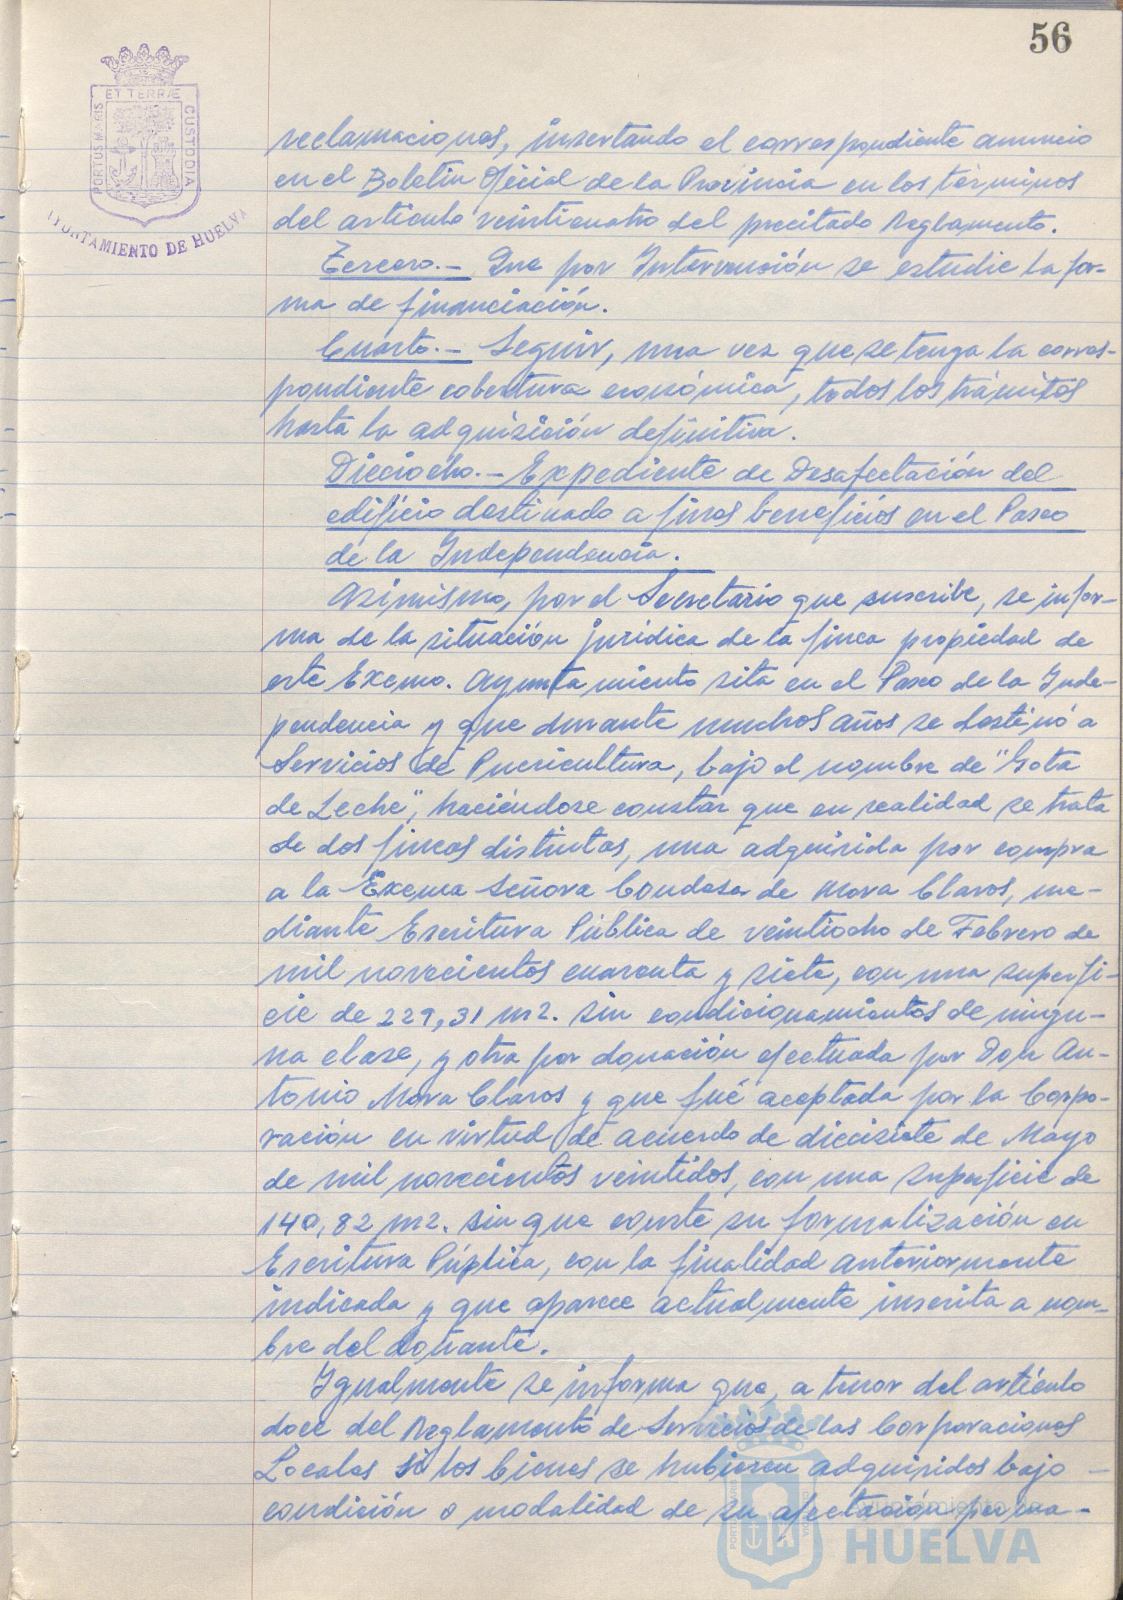 56
PORTUS MARIS ET TERRÆ CUSTODIA
AYUNTAMIENTO DE HUELVA
reclamaciones, insertando el correspondiente anuncio
en el Boletin Oficial de la Provincia en los términos
del articulo veinticuatro del precitado Reglamento.
Tercero.- Que por Intervención se estudie la for-
ma de financiación.
Cuarto.- Seguir, una vez que se tenga la corres-
pondiente cobertura económica, todos los trámites
hasta la adquisición definitiva.
Dieciocho.- Expediente de Desafectación del
edificio destinado a fines beneficios en el Paseo
de la Independencia.
Asimismo, por el Secretario que suscribe, se infor-
ma de la situación jurídica de la finca propiedad de
este Excmo. Ayuntamiento sita en el Paseo de la Inde-
pendencia y que durante muchos años se destinó a
Servicios de Puericultura, bajo el nombre de "Gota
de Leche", haciéndose constar que en realidad se trata
de dos fincas distintas, una adquirida por compra
a la Excma Señora Condesa de Mora Claros, me-
diante Escritura Pública de veintiocho de Febrero de
mil novecientos cuarenta y siete, con una superfi-
cie de 229,31 m2. sin condicionamientos de ningu-
na clase, y otra por donación efectuada por Don An-
tonio Mora Claros y que fué aceptada por la Corpo-
ración en virtud de acuerdo de diecisiete de Mayo
de mil novecientos veintidos, con una superficie de
140,82 m2. sin que conste su formalización en
Escritura Pública, con la finalidad anteriormente
indicada y que aparece actualmente inscrita a nom-
bre del donante.
Igualmente se informa que, a tenor del artículo
doce del Reglamento de Servicios de las Corporaciones
Locales si los bienes se hubieren adquiridos bajo
condición o modalidad de su afectación perma-
Ayuntamiento de
HUELVA